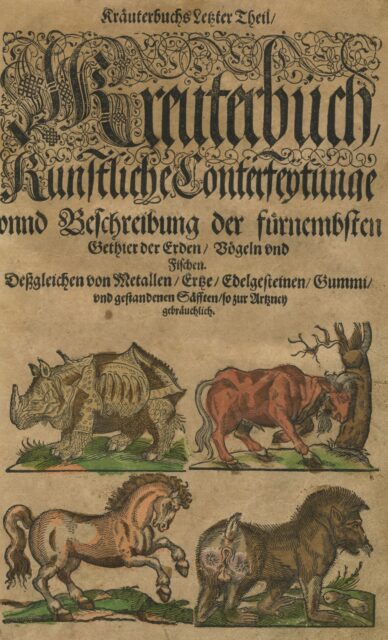 Kräuterbuchs Letzter Theil/
Kreuterbuch/
Kunstliche Conterfeytunge
vnnd Beschreibung der fürnembsten
Gethier der Erden/ Vögeln vnd
Fischen.
Deßgleichen von Metallen/ Ertze/ Edelgesteinen/ Gummi/
vnd gestandenen Säfften/ so zur Artzney
gebräuchlich.